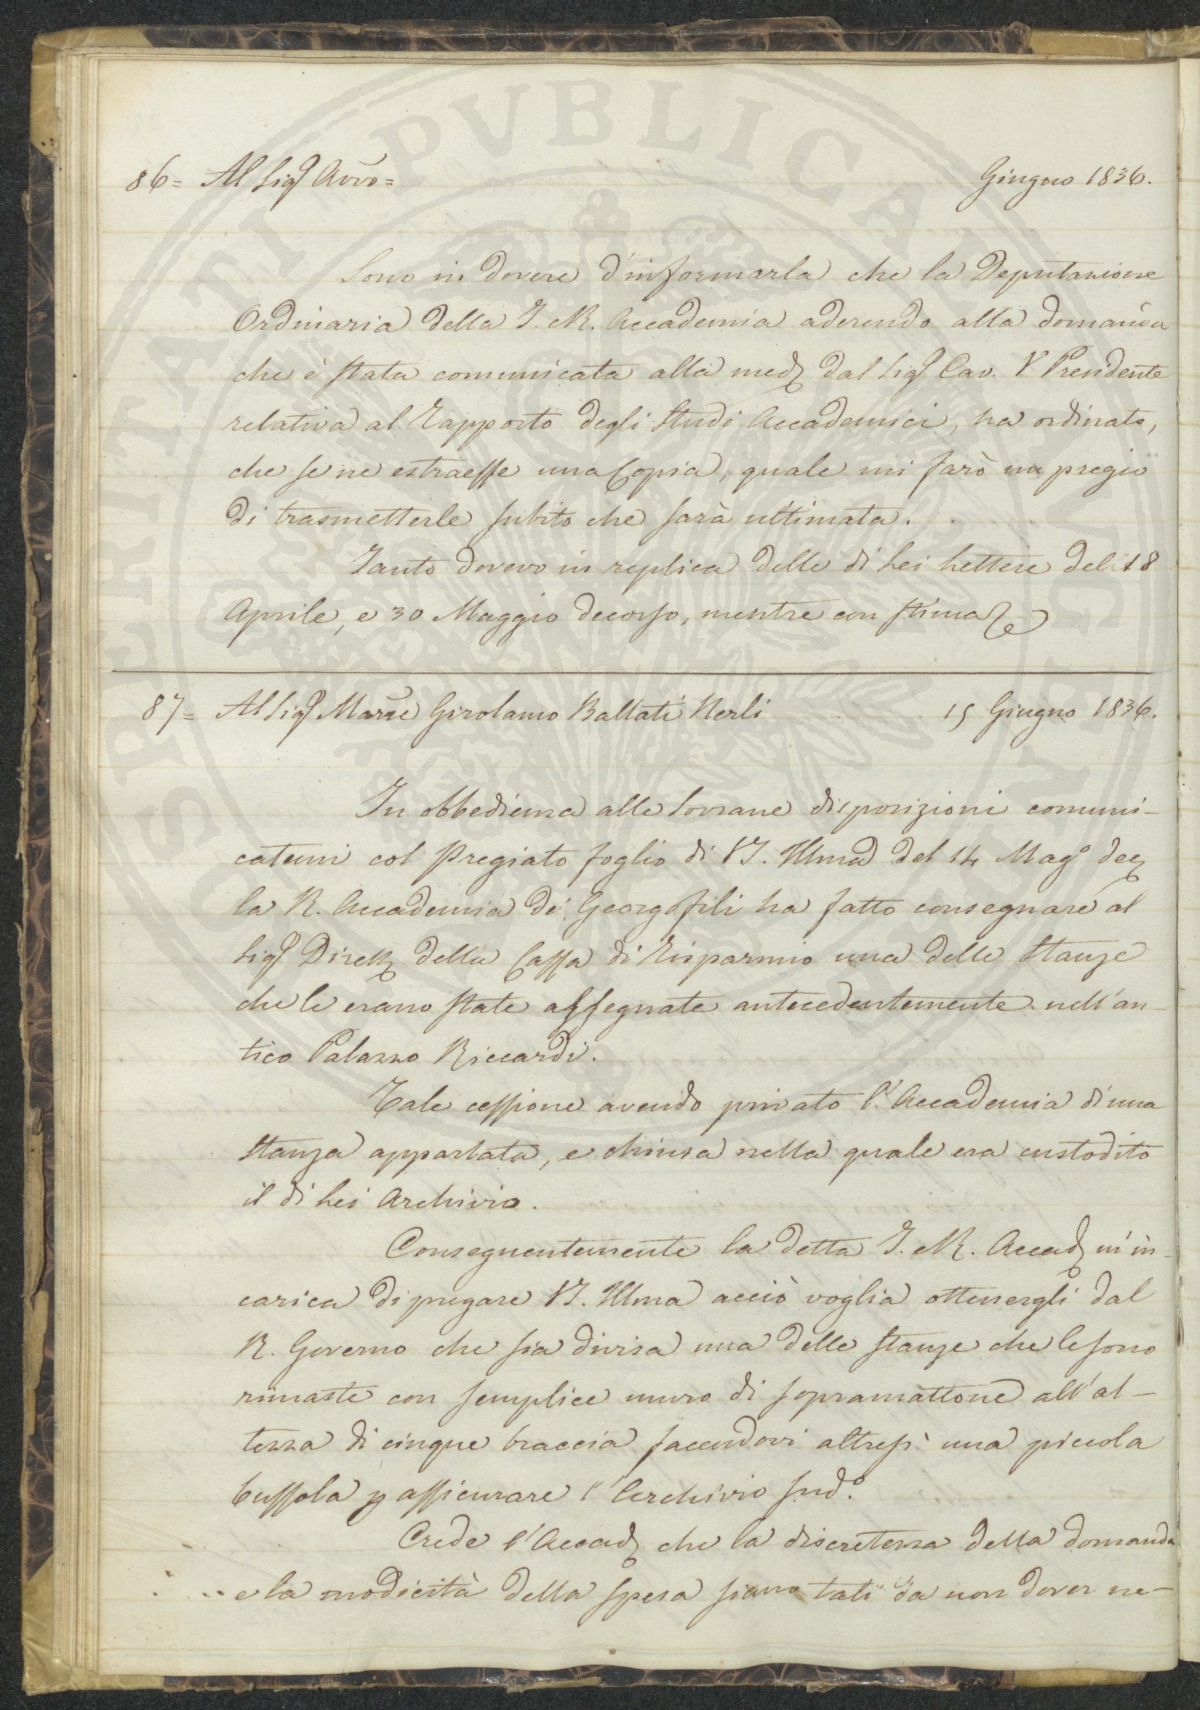 PROSPERITATI PVBLICAE AVGENDAE
86= Al Sig.r Avv.o= Giugno 1836.
Sono in dovere d'informarla che la Deputazione
Ordinaria della I. e R. Accademia aderendo alla domanda
che è stata comunicata alla med.a dal Sig.r Cav. V. Presidente
relativa al Rapporto degli Studi Accademici, ha ordinato,
che se ne estraesse una Copia, quale mi farò un pregio
di trasmetterle subito che sarà ultimata.
Tanto dovevo in replica delle di Lei Lettere del 18
Aprile, e 30 Maggio decorso, mentre con stima &c
87= Al Sig.r March.e Girolamo Ballati Nerli 15 Giugno 1836.
In obbedienza alle Sovrane disposizioni comuni-
catemi col Pregiato foglio di V.S. Illma del 14 Mag.o dec.o
la R. Accademia de' Georgofili ha fatto consegnare al
Sig.r Dirett.e della Cassa di Risparmio una delle Stanze
che le erano state assegnate antecedentemente nell'an-
tico Palazzo Riccardi.
Tale cessione avendo privato l'Accademia di una
stanza appartata, e chiusa nella quale era custodito
il di Lei Archivio.
Conseguentemente la detta I. e R. Accad.a m'in-
carica di pregare V.S. Illma acciò voglia ottenergli dal
R. Governo che sia divisa una delle stanze che le sono
rimaste con semplice muro di sopramattone all'al-
tezza di cinque braccia facendovi altresì una piccola
bussola p assicurare l'Archivio sud.o
Crede l'Accad.a che la discretezza della domanda
e la modicità della spesa siano tali da non dover ne-